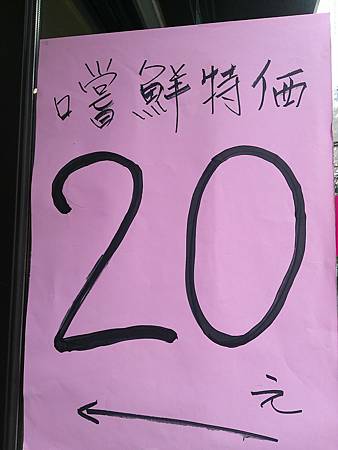 嚐鮮特価
20
元